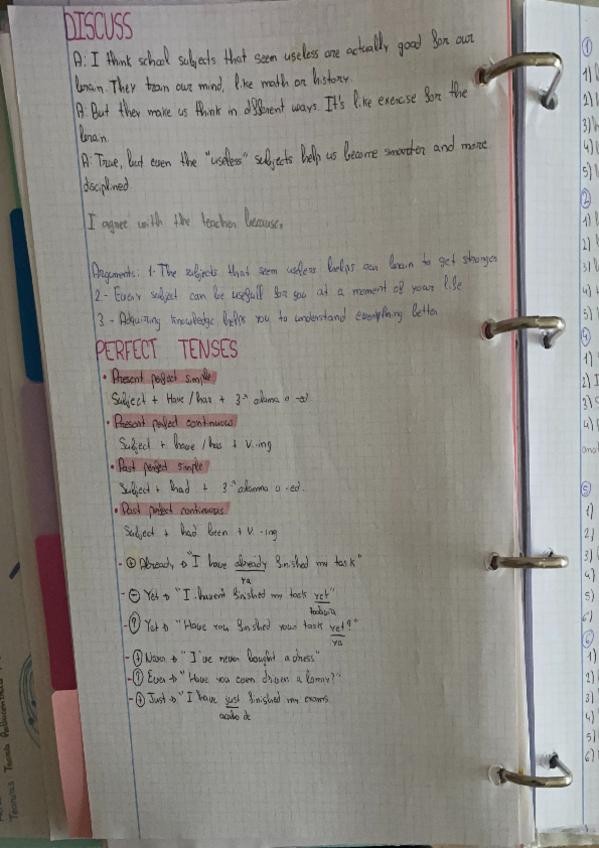 DISCUSS
A: I think school subjects that seem useless are actually good for our
brain. They train our mind, like math or history.
A: But they make us think in different ways. It's like exercise for the
brain.
A: True, but even the "useless" subjects help us become smarter and more
disciplined
I agree with the teacher because,
Arguments: 1- The subjects that seem useless helps our brain to get stronger
2- Every subject can be usefull for you at a moment of your life
3- Adquiring knowledge helps you to understand everything better
PERFECT TENSES
• Present perfect simple
Subject + Have/has + 3ª columna o -ed
• Present perfect continuous
Subject + have/has + V.-ing
• Past perfect simple
Subject + had + 3ª columna o -ed.
• Past perfect continuous
Subject + had been + V.-ing
- + Already → "I have already finished my task"
ya
- − Yet → "I haven't finished my task yet"
todavía
- ? Yet → "Have you finished your task yet?"
ya
- + Never → "I've never bought a dress"
- ? Ever → "Have you ever driven a lorry?"
- + Just → "I have just finished my exams
acabo de